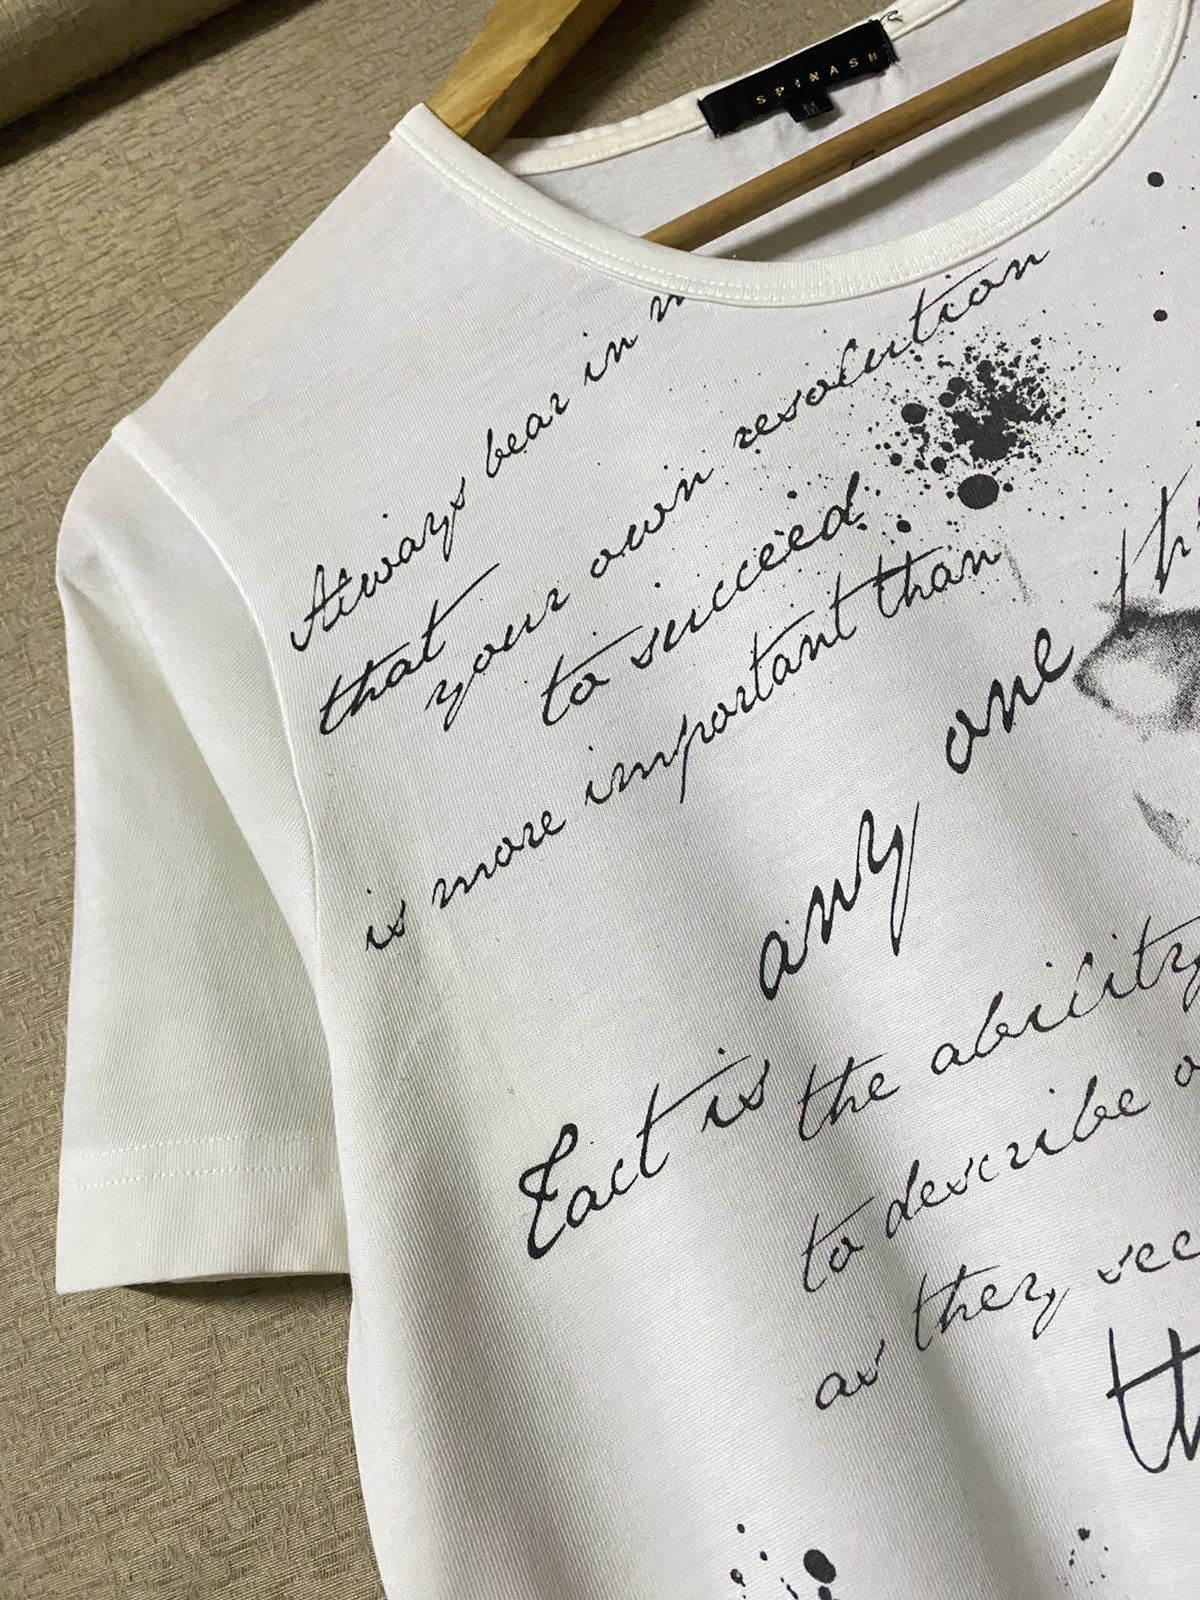 SPINASH
M
Always bear in
that your own resolution
to succeed
is more important than
any one
Tact is the ability
to describe
as they see